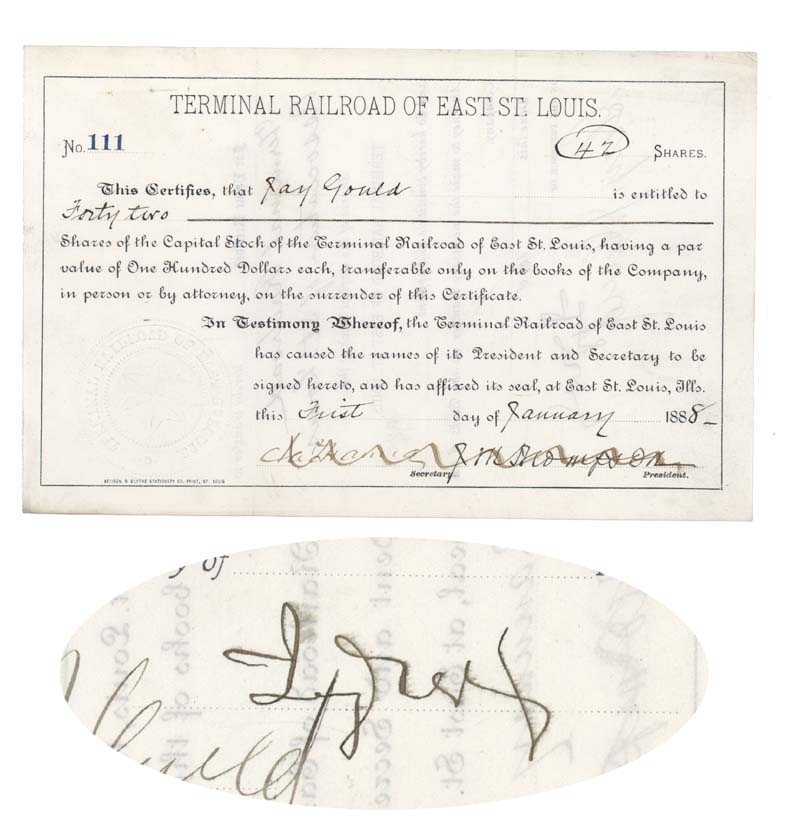 TERMINAL RAILROAD OF EAST ST. LOUIS.
No. 111 42 SHARES.
This Certifies, that Jay Gould is entitled to
Forty two
Shares of the Capital Stock of the Terminal Railroad of East St. Louis, having a par
value of One Hundred Dollars each, transferable only on the books of the Company,
in person or by attorney, on the surrender of this Certificate.
In Testimony Whereof, the Terminal Railroad of East St. Louis
has caused the names of its President and Secretary to be
signed hereto, and has affixed its seal, at East St. Louis, Ills.
this First day of January 1888
Thompson
Secretary. President.
STATIONERY CO. PRINT, ST. LOUIS
y of
Gould